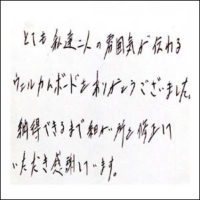 とても私達二人の雰囲気が伝わる
ウェルカムボードをありがとうございました。
納得できるまで細かい所を修正して
いただき感謝しています。